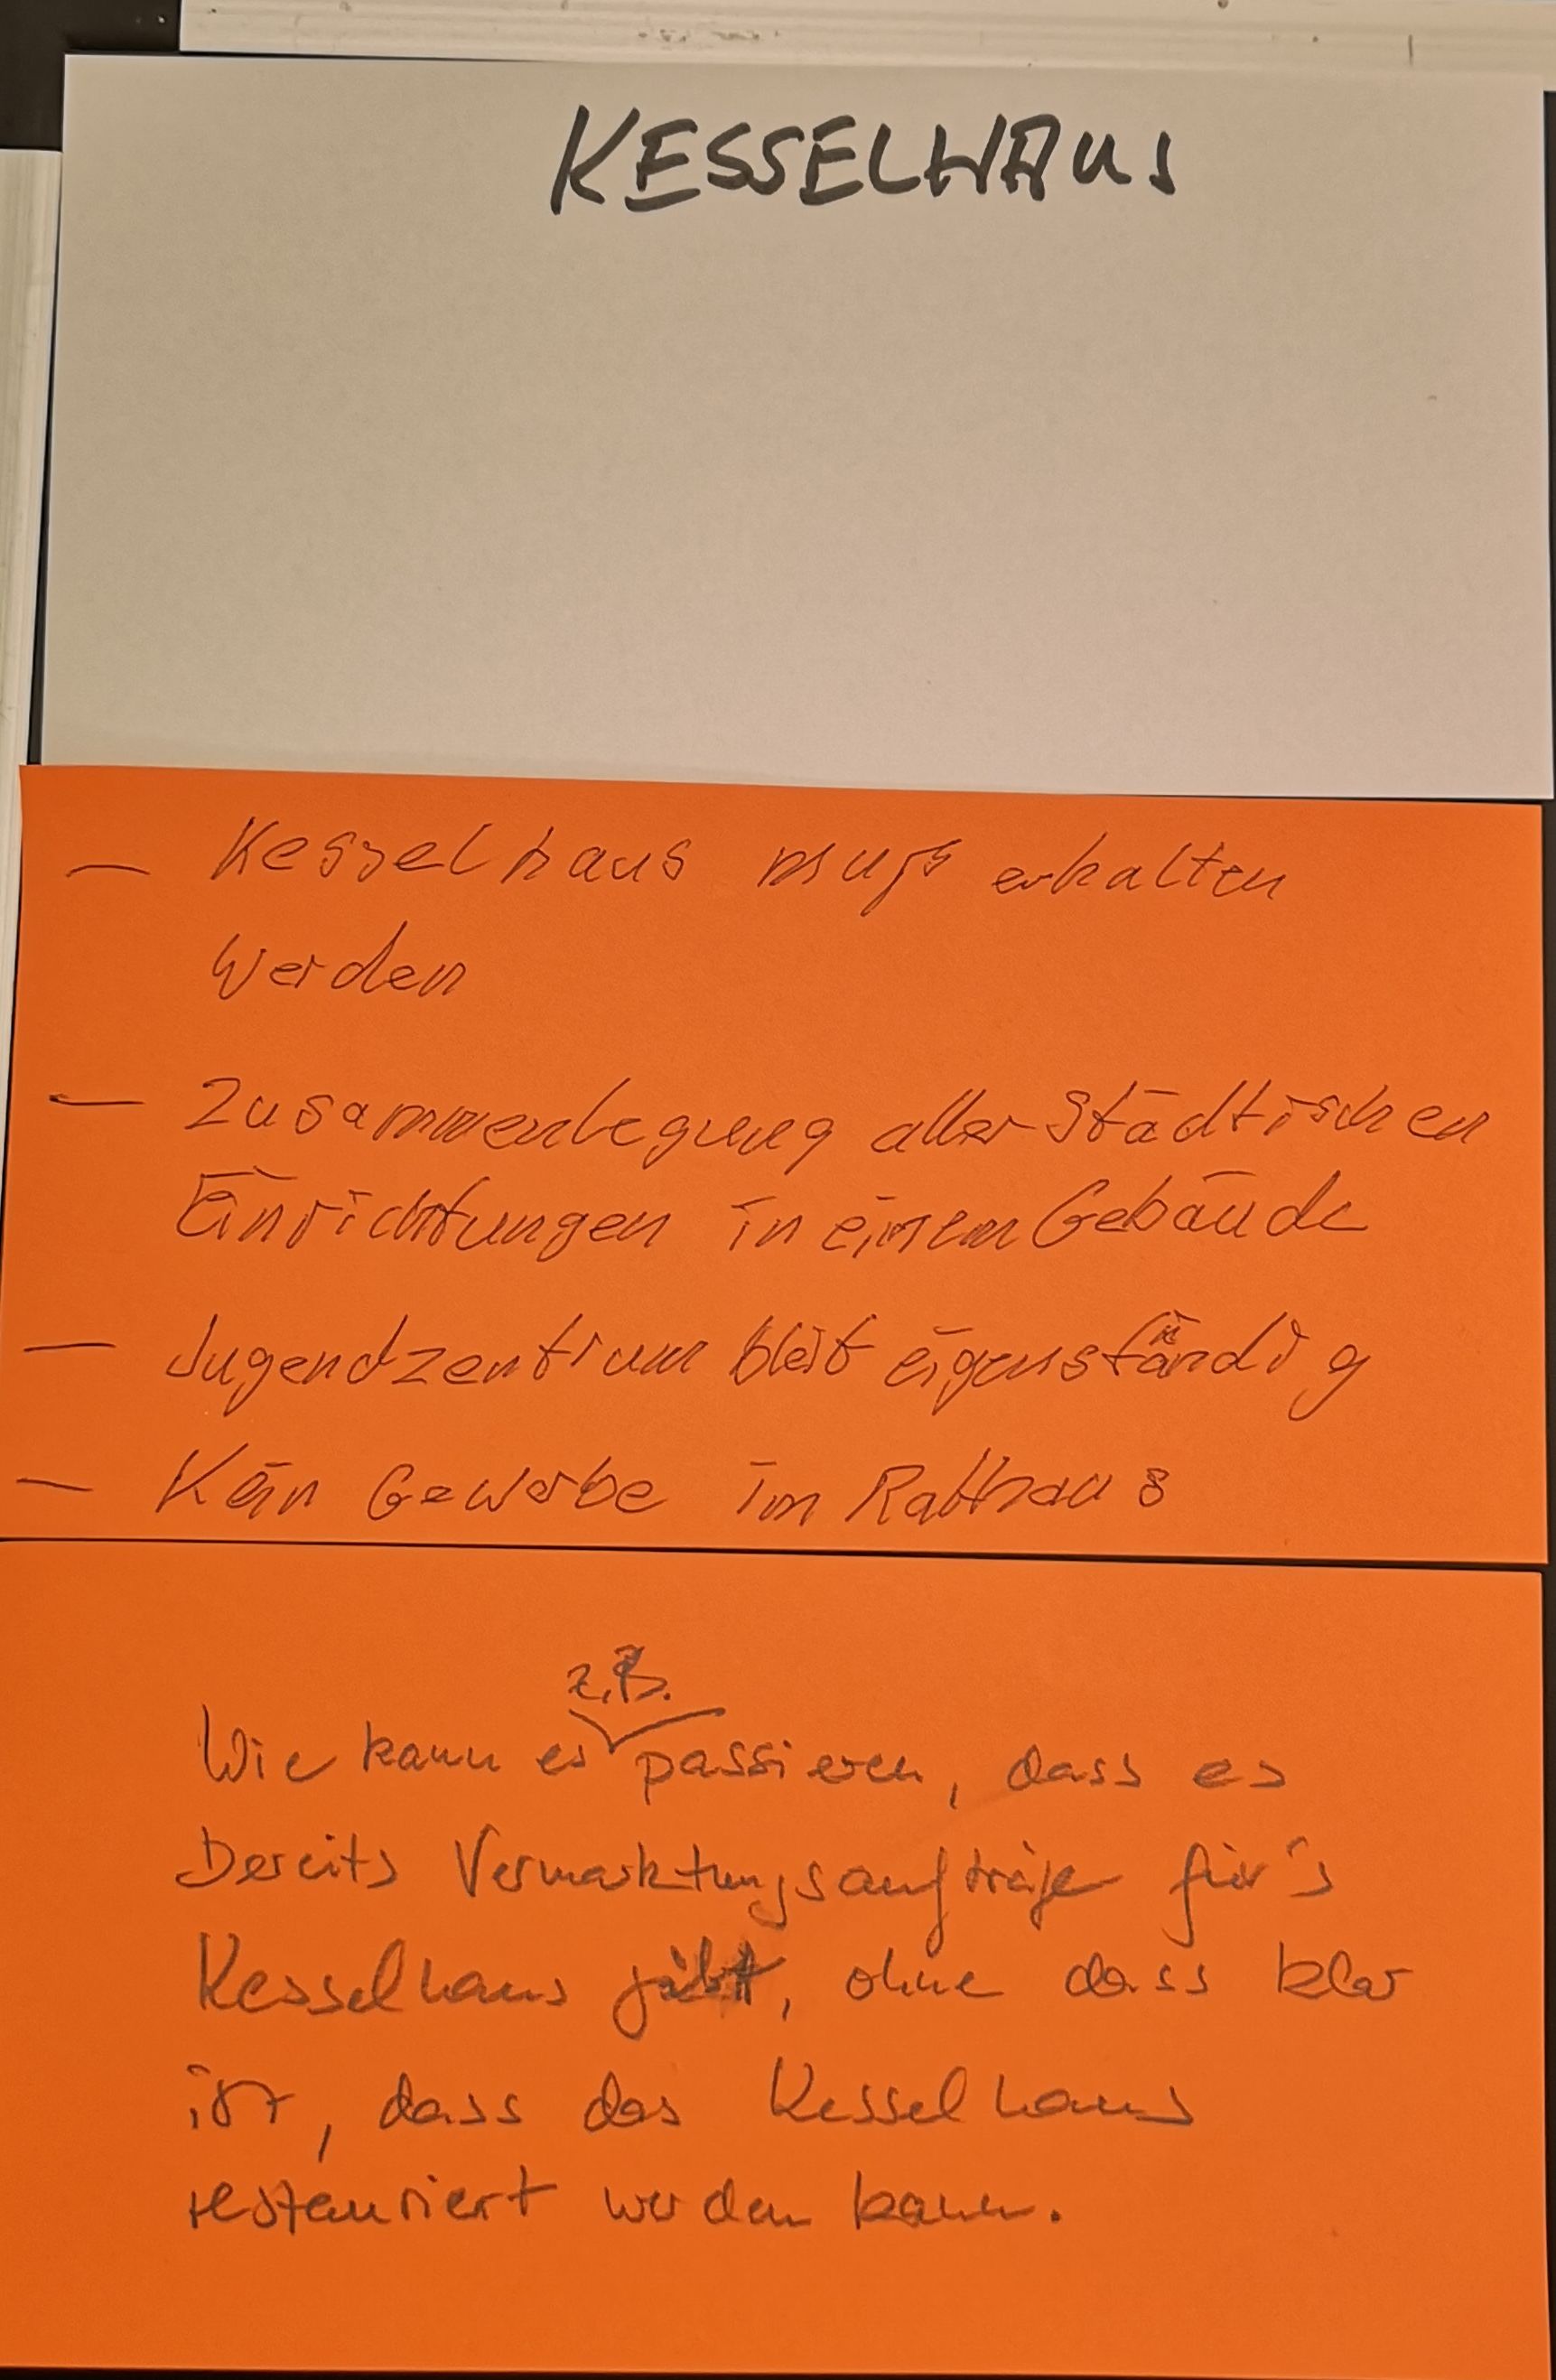 KESSELHAUS
- Kesselhaus muß erhalten
werden
- Zusammenlegung aller Städtischen
Einrichtungen in einem Gebäude
- Jugendzentrum bleibt eigenständig
- Kein Gewerbe im Rathaus
z.B.
Wie kann es passieren, dass es
bereits Vermarktungsaufträge für's
Kesselhaus gibt, ohne dass klar
ist, dass das Kesselhaus
restauriert werden kann.